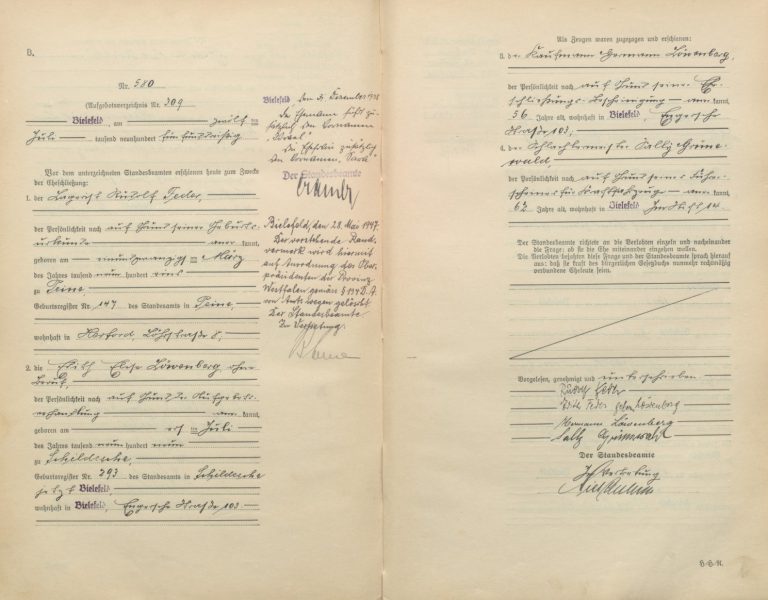 B.
Nr. 580
(Aufgebotsverzeichnis Nr. 309
Bielefeld, am zwölften
Juli tausend neunhundert einunddreißig
Vor dem unterzeichneten Standesbeamten erschienen heute zum Zwecke
der Eheschließung:
1. der Lagerist Rudolf Feder,
der Persönlichkeit nach auf Grund seiner Geburts-
urkunde anerkannt,
geboren am neunundzwanzigsten März
des Jahres tausend neunhundert eins
zu Peine
Geburtsregister Nr. 147 des Standesamts in Peine,
wohnhaft in Herford, Löhrstraße 8,
2. die Edith Else Löwenberg ohne
Beruf,
der Persönlichkeit nach auf Grund der Aufgebots-
verhandlung anerkannt,
geboren am Juli
des Jahres tausend neunhundert neun
zu Schildesche,
Geburtsregister Nr. 293 des Standesamts in Schildesche
jetzt Bielefeld
wohnhaft in Bielefeld, Engersche Straße 103.
Bielefeld den 31. Dezember 1938
Der Ehemann führt zu-
sätzlich den Vornamen
"Israel"
die Ehefrau zusätzlich
den Vornamen "Sara"
Der Standesbeamte
Bielefeld, den 28. Mai 1947.
Der vorstehende Rand-
vermerk wird hiermit
auf Anordnung des Ober-
präsidenten der Provinz
Westfalen gemäss § 134 D. A.
von Amts wegen gelöscht
Der Standesbeamte
In Vertretung.
Als Zeugen waren zugezogen und erschienen:
3. der Kaufmann Hermann Löwenberg,
der Persönlichkeit nach auf Grund seiner
bescheinigung anerkannt,
56 Jahre alt, wohnhaft in Bielefeld, Engersche
Straße 103;
4. der Schlachtermeister Sally Grüne-
wald,
der Persönlichkeit nach auf Grund seines Führer-
scheines für Kraftfahrzeuge anerkannt,
62 Jahre alt, wohnhaft in Bielefeld,
Der Standesbeamte richtete an die Verlobten einzeln und nacheinander
die Frage: ob sie die Ehe miteinander eingehen wollen.
Die Verlobten bejahten diese Frage und der Standesbeamte sprach hierauf
aus: daß sie kraft des bürgerlichen Gesetzbuchs nunmehr rechtmäßig
verbundene Eheleute seien.
Vorgelesen, genehmigt und unterschrieben
Rudolf Feder
Edith Feder geb. Löwenberg
Hermann Löwenberg
Sally Grünewald
Der Standesbeamte
In Vertretung